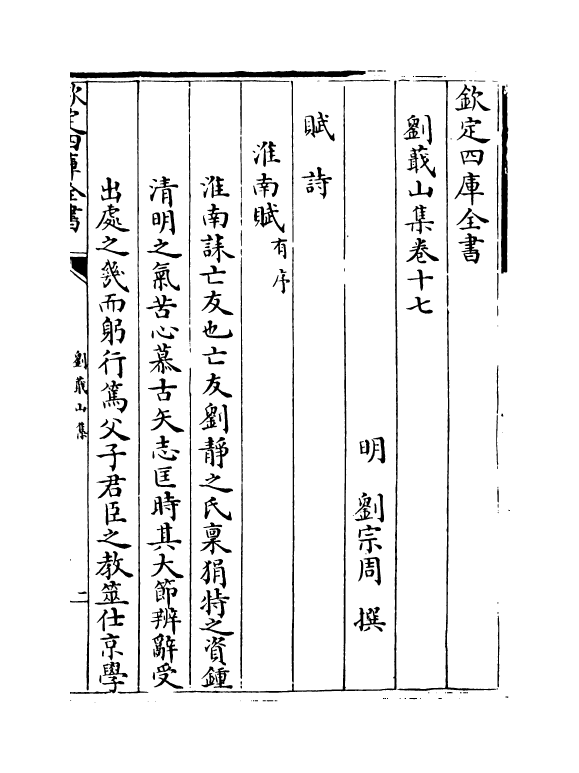 欽定四庫全書
劉蕺山集卷十七
明 劉宗周 撰
賦 詩
淮南賦有序
淮南誄亡友也亡友劉靜之氏稟狷特之資鍾
清明之氣苦心慕古矢志匡時其大節辨辭受
出處之幾而躬行篤父子君臣之教筮仕京學
欽定四庫全書
劉蕺山集
二